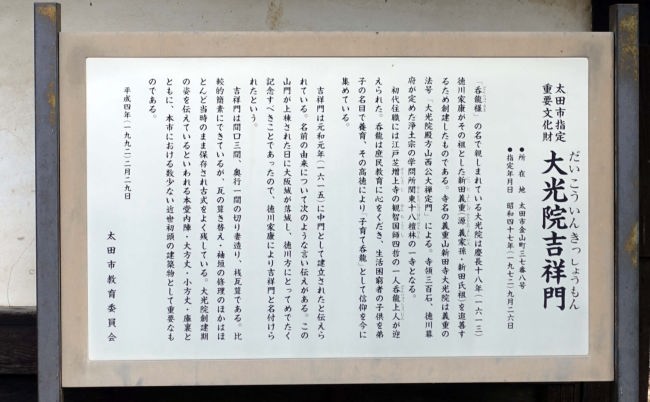 太田市指定
重要文化財
大光院吉祥門
だいこういんきっしょうもん
●所在地 太田市金山町三七番八号
●指定年月日 昭和四十七年(一九七二)九月二六日
「呑龍様」の名で親しまれている大光院は慶長十八年(一六一三)
徳川家康がその祖とした新田義重(源義家孫・新田氏祖)を追善す
るため創建したものである。寺名の義重山新田寺大光院は義重の
法号「大光院殿方山西公大禅定門」による。寺領三百石、徳川幕
府が定めた浄土宗の学問所関東十八檀林の一寺となる。
初代住職には江戸芝増上寺の観智国師四哲の一人呑龍上人が迎
えられた。呑龍は庶民教育に心をくだき、生活困窮者の子供を弟
子の名目で養育、その高徳により「子育て呑龍」として信仰を今に
集めている。
吉祥門は元和元年(一六一五)に中門として建立されたと伝えら
れている。名前の由来について次のような言い伝えがある。この
山門が上棟された日に大阪城が落城し、徳川方にとってめでたく
記念すべきことであったので、徳川家康により吉祥門と名付けら
れたという。
吉祥門は間口三間、奥行一間の切り妻造り、桟瓦葺である。比
較的簡素にできているが、瓦の葺き替え・袖垣の修理のほかはほ
とんど当時のまま保存され古式をよく残している。大光院創建期
の姿を伝えているといわれる本堂内陣・大方丈・小方丈・庫裏と
ともに、本市における数少ない近世初頭の建築物として重要なも
のである。
平成四年(一九九二)二月二九日
太田市教育委員会